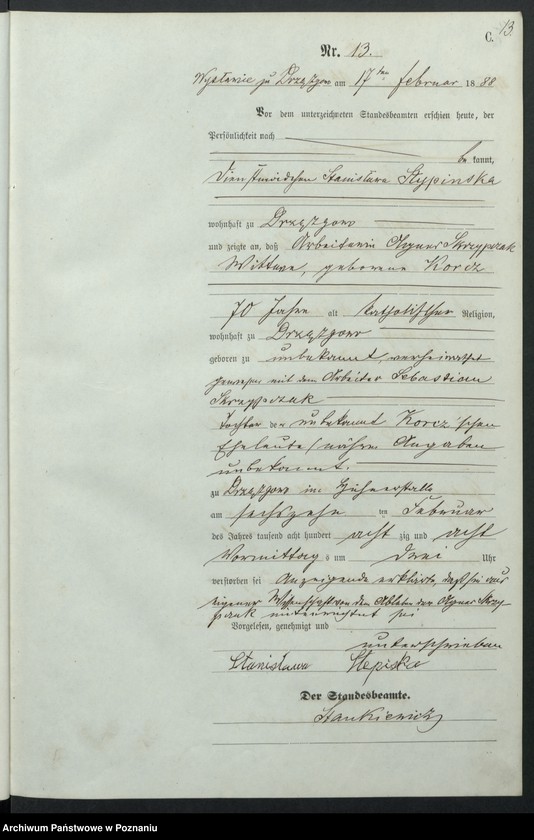 C. 13.
Nr. 13.
Wysławice zu Drzązgowo am 17ten Februar 1888
Vor dem unterzeichneten Standesbeamten erschien heute, der
Persönlichkeit nach
bekannt,
Dienstmädchen Stanisława Stypinska
wohnhaft zu Drzązgowo
und zeigte an, daß Arbeiterin Agnes Skrzypczak
Wittwe, geborene Korcz
70 Jahre alt katholischer Religion,
wohnhaft zu Drzązgowo
geboren zu unbekannt, verheirathet
gewesen mit dem Arbeiter Sebastian
Skrzypczak
Tochter der unbekannt Korcz'schen
Eheleute/nähere Angaben
unbekannt.
zu Drzązgowo im Hühnerstalle
am sechszehn ten Februar
des Jahres tausend acht hundert acht zig und acht
Vormittags um drei Uhr
verstorben sei Anzeigende erklärte, daß sie aus
eigener Wissenschaft von dem Ableben der Agnes Skrzy-
pczak unterrichtet sei
Vorgelesen, genehmigt und
unterschrieben
Stanisława Stepiska
Der Standesbeamte.
Stankiewicz
Archiwum Państwowe w Poznaniu